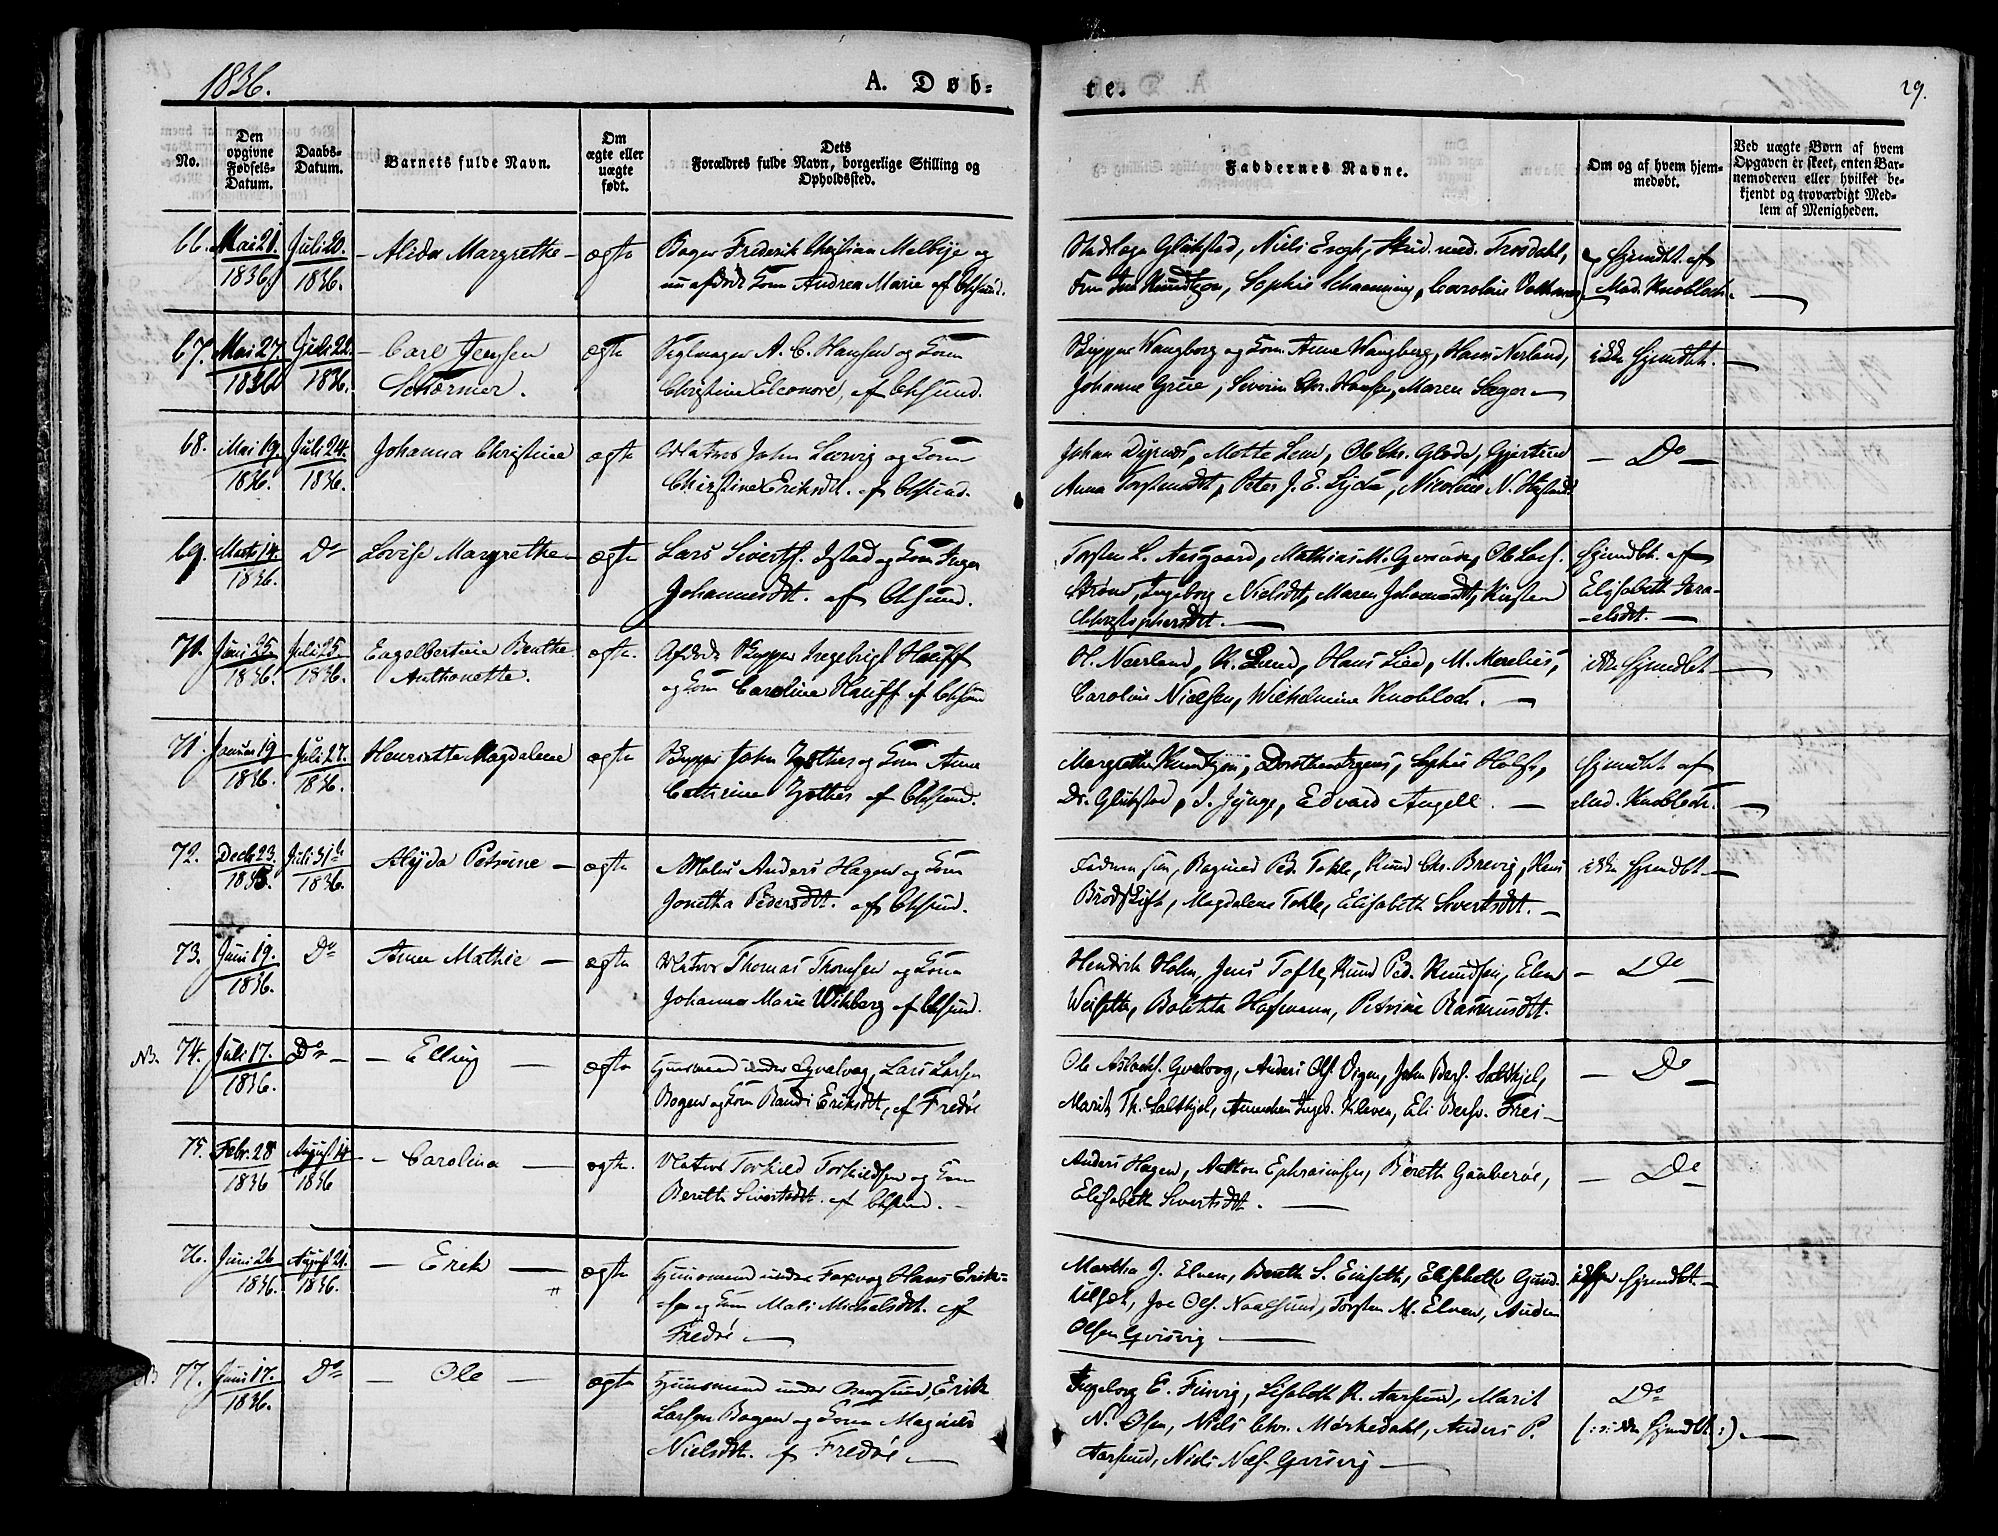 1836.
A. Døb=
te.
29.
No.
Den opgivne Fødsels-Datum.
Daabs-Datum.
Barnets fulde Navn.
Om ægte eller uægte født.
Dets Forældres fulde Navn, borgerlige Stilling og Opholdssted.
Faddernes Navne.
Om og af hvem hjemmedøbt.
Ved uægte Børn af hvem Opgaven er skeet, enten Barnemoderen eller hvilket bekjendt og troværdigt Medlem af Menigheden.
66. Mai 21. 1836. Juli 20. 1836. – Alida Margrethe – ægte
Bager Frederik Christian Melbye og
Andrea Marie af Chsund.
Glükstad, Niels stud. med. Trosdahl,
Knudtzon, Sophie Caroline
Hjemdbt. af
Mad. Knobloch. —
67. Mai 27. 1836. Juli 22. 1836. – Carl Jenssen
Schærmer. ægte
A. C. Hansen og Kone
Christine Eleonore, af Chsund.
Skipper Wangberg og Kone Anne Wangberg, Hans Nerland,
Johanne Grüe, Severin Chr. Hansen, Maren Sæger —
ikke hjemdbt. —
68. Mai 19. 1836. Juli 24. 1836. Johanna Christine ægte
Matros John Leervig og Kone
Christine Eriksdt. af Chsund.
Johan Mette Ole Chr. Gjertrud
Anna Torstensdt, Peter J. E. Nicoline N.
– Do –
69. Marts 14. 1836. Do Lovise Margrethe – ægte
Lars Siverts. og Kone Inger
Johannesdt. af Chsund.
Torsten L. Aasgaard, Mathias M. Ole Lars.
Strand, Ingeborg Nielsdt, Maren Johannesdt, Kirsten
Christophersdt. —
Hjemdbt. af
Elisabeth Isra-
-elsdt. —
70. Juni 25. 1836. Juli 25. 1836. Engelbertine Benthe
Anthonette. ægte.
Afdøde Skipper Ingebrigt Hauff
og Kone Caroline Hauff af Chsund
H. Neerland, K. Lund, Hans Lied, M.
Caroline Nielsen, Wilhelmine Knobloch. —
ikke hjemdbt —
71. Januar 19 1836. Juli 27. 1836. Henriette Magdalene ægte
Skipper John og Kone Anne
Cathrine af Chsund.
Margrethe Knudtzon, Dorothea Sophie
Dr. Glükstad, J. Jynge, Edvard Angell. —
Hjemdbt. af
Mad. Knobloch. —
72. Decb. 23. 1835. Juli 31te 1836. Alyda Petrine – ægte
Anders Hagen og Kone
Jonetha Pedersdt. af Chsund.
Ped. Tokle, Knud Chr. Brevig,
Magdalene Tokle, Elisabeth Sivertsdt. —
ikke hjemdbt —
73. Juni 19. 1836. Do Anne Mathie – ægte
Matros Thomas Thomsen og Kone
Johanna Marie Wikberg af Chsund.
Hendrik Holm, Jens Tofte, Knud Ped. Knudsen, Elen
Hofmann, Petrine Rasmusdt.
– Do –
NB. 74. Juli 17. 1836. Do – – Elling – ægte
Huusmand under Qvalvaag, Lars Larsen
Bogen og Kone Randi Eriksdt, af Fredøe
Ole Aslachs. Qvalvog, Anders Ols. Vigen, John Bers. Saltkjel,
Marit Th. Saltkjel, Anne Kleven, Eli Bersv. Frei –
– Do –
75. Febr. 28 1836 August 14 1836 – Carolina – ægte.
Matros Torkild Torkildsen og Kone
Bereth Sivertsdt. af Chsund. –
Anders Hagen, Anton Ephraimsen, Bereth Gauberøe,
Elisabeth Sivertsdt. —
– Do –
76. Juni 26 1836. August 21. 1836. – Erik – ægte
Huusmand under Foxvog Hans Erik-
-sen og Kone Mali Michelsdt. af
Fredøe —
Martha J. Elven, Bereth S. Einseth, Elisabeth Gund-
Joe Ols. Naalsund, Torsten M. Elven, Anders
Olsen Qvisvig —
ikke hjemdbt. –
NB 77. Juni 17. 1836. Do – Ole – ægte
Huusmand under Erik
Larsen Bogen og Kone Magnild
Nielsdt. af Fredøe —
Ingeborg E. Lisabeth K. Aarsund, Marit
N. Olsen, Niels Chr. Mørkedahl, Anders P.
Aarsund, Niels Qvisvig —
Do
(: ɔ: ikke hjemdbt :). —